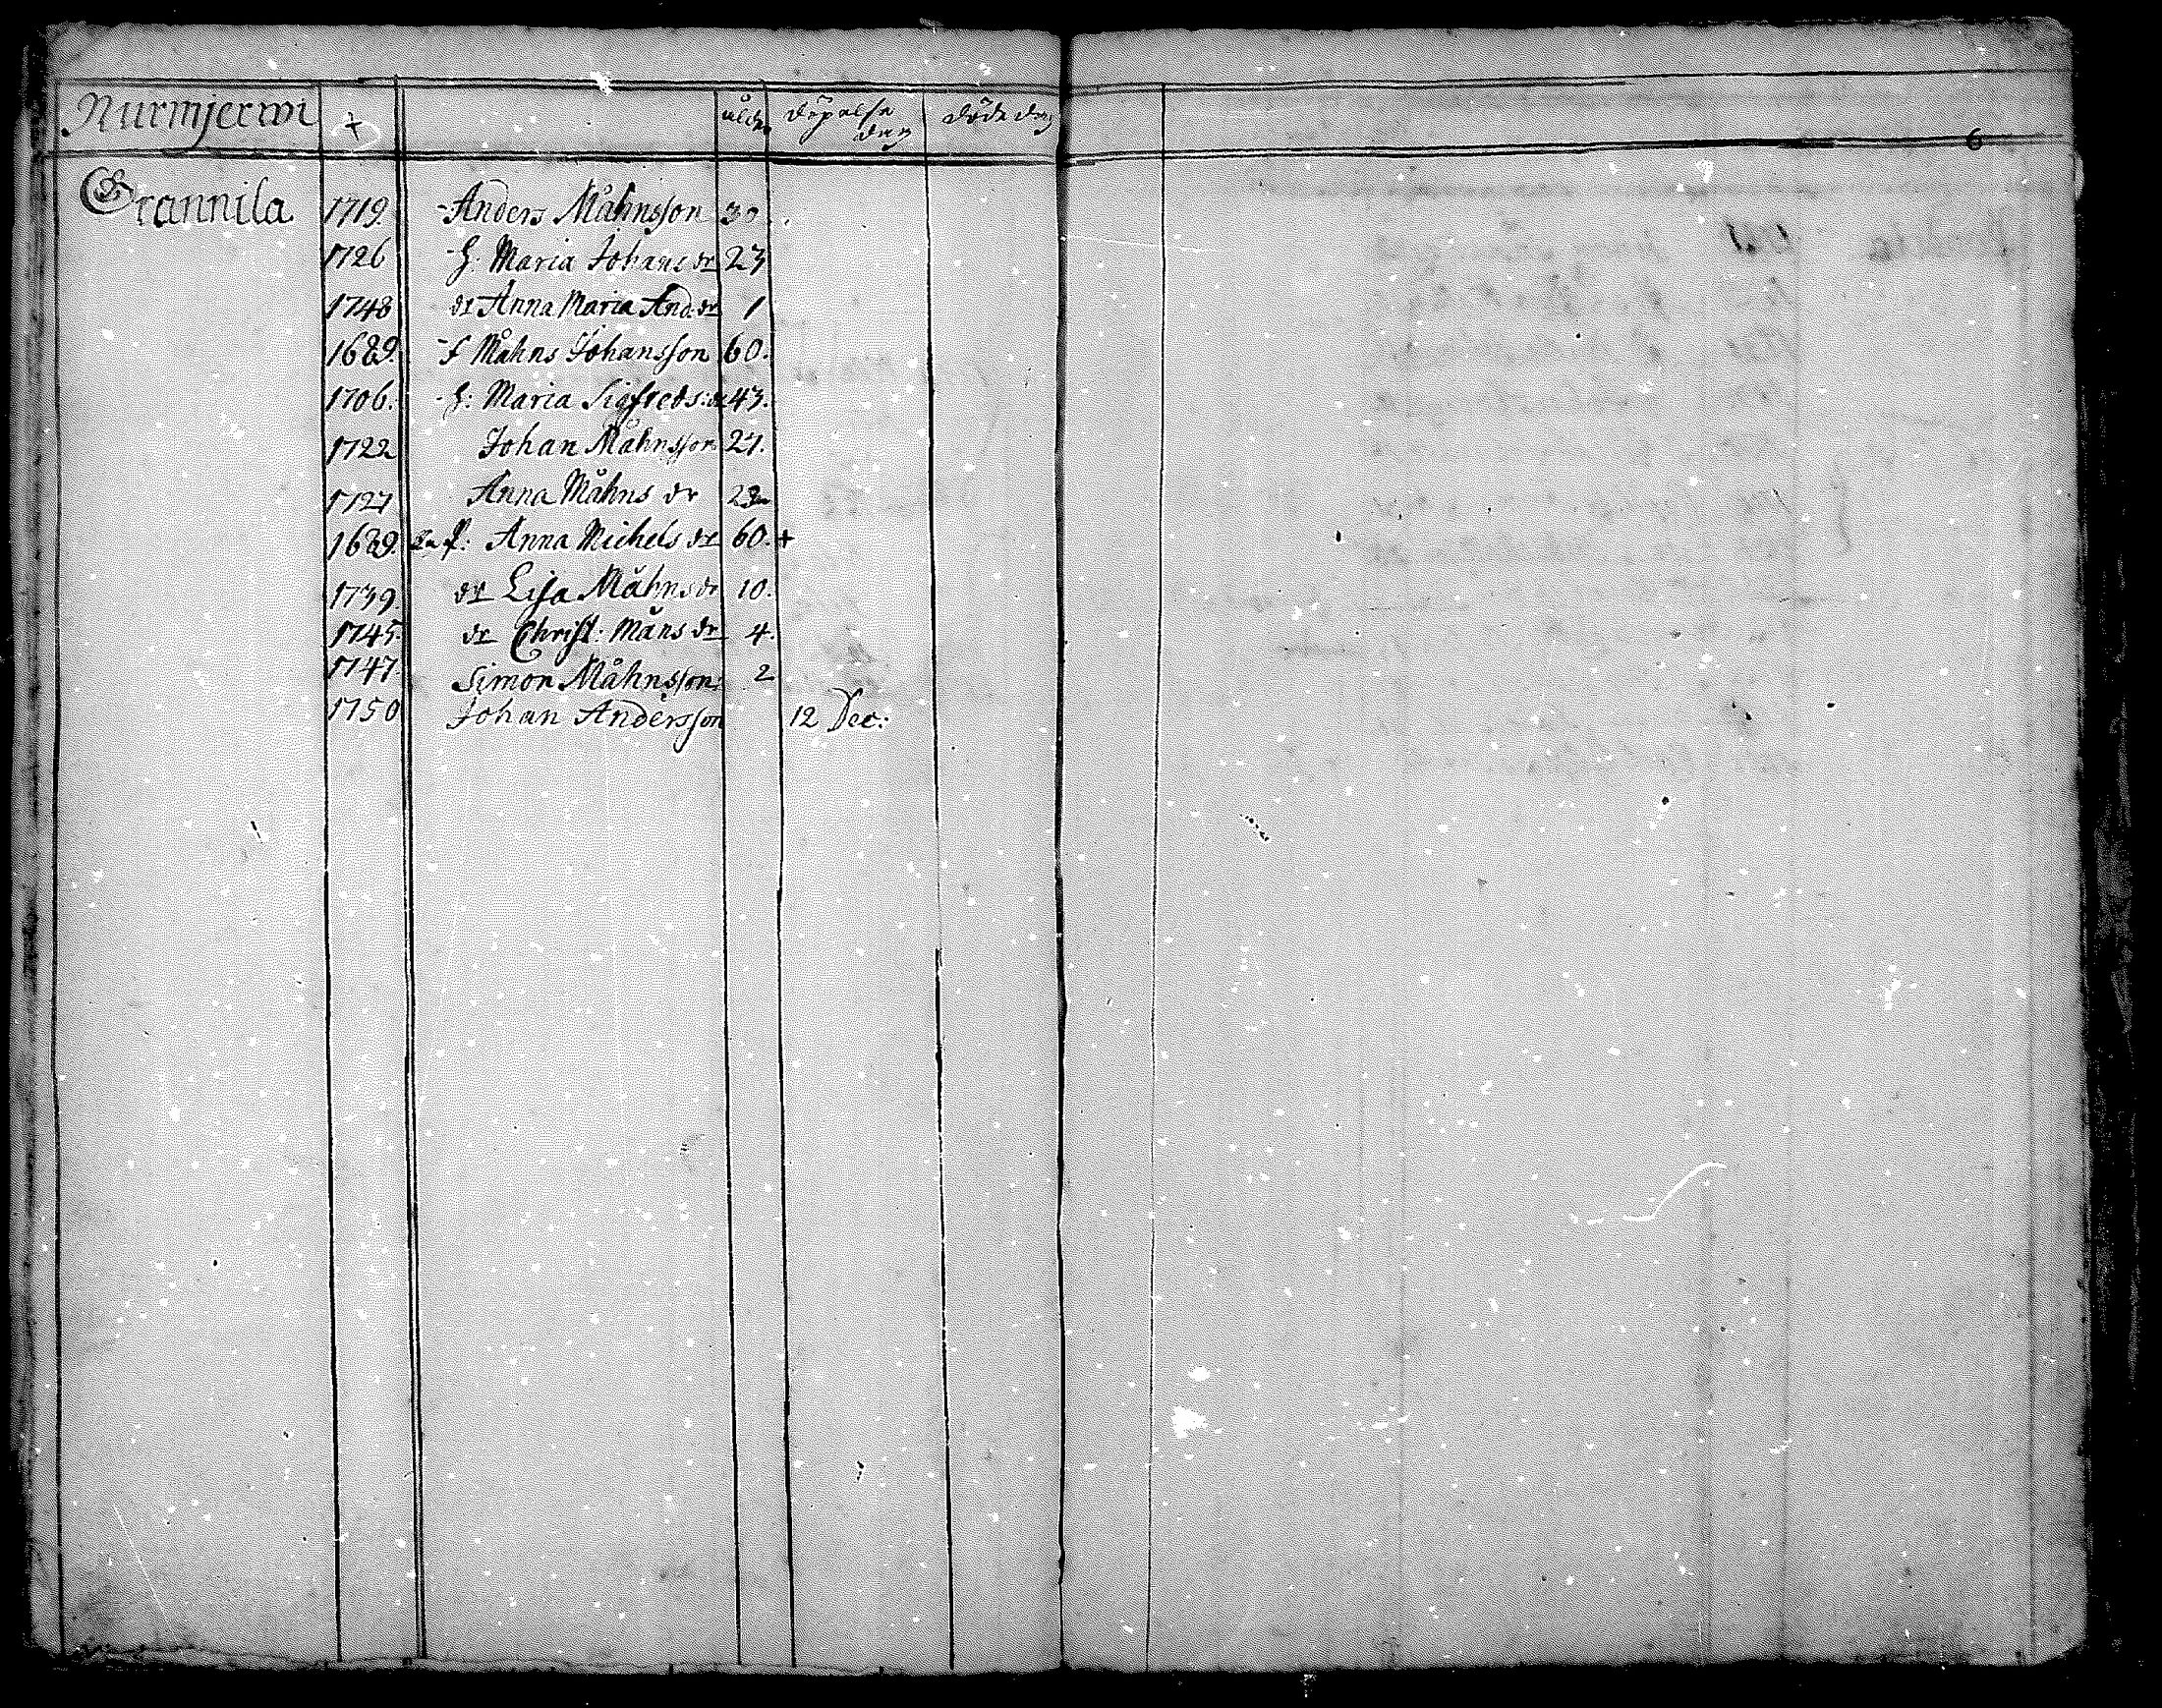 Nurmjerwi + ålder döpelse dag döde dag
6
Grannila 1719. - Anders Måhnsson 30.
1726 - H: Maria Johans dr 23
1748 dr Anna Maria And. dr 1
1689. - f Måhns Johansson 60.
1706. - H: Maria Sigfreds: dr 43.
1722 Johan Måhnsson 27.
1727 Anna Måhns dr 22
1689. Anna Michels dr 60. +
1739. dr Lisa Måhns dr 10.
1745. dr Christ: Måns dr 4.
1747. Simon Måhnsson 2
1750 Johan Andersson 12 Dec: